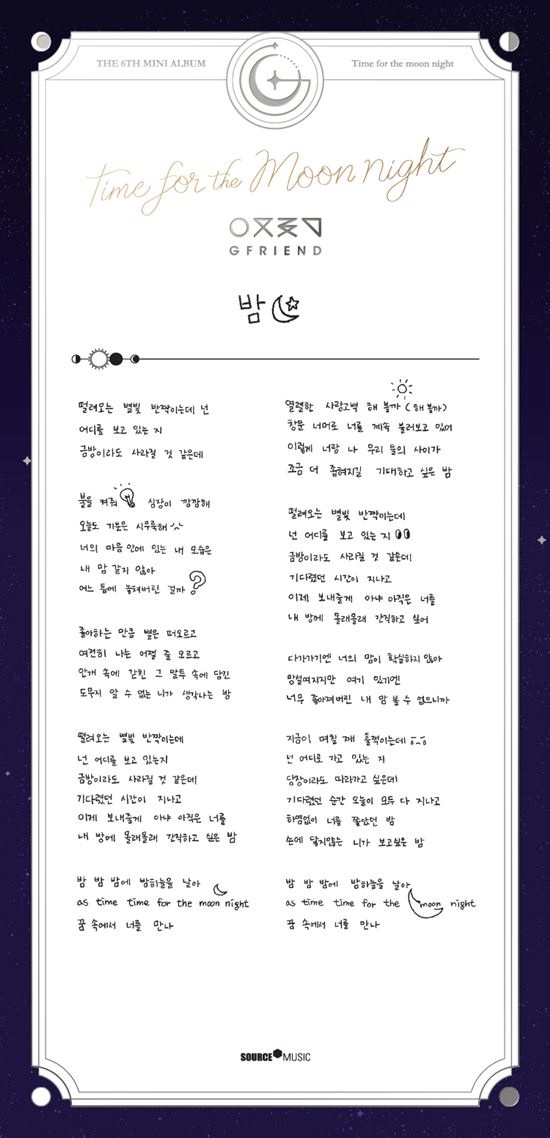 THE 6TH MINI ALBUM
Time for the moon night
Time for the Moon night
GFRIEND
밤
떨려오는 별빛 반짝이는데 넌
어디를 보고 있는 지
금방이라도 사라질 것 같은데
불을 켜줘 심장이 깜깜해
오늘도 기분은 시무룩해
너의 마음 안에 있는 내 모습은
내 맘 같지 않아
어느 틈에 놓쳐버린 걸까
좋아하는 만큼 별은 떠오르고
여전히 나는 어쩔 줄 모르고
안개 속에 갇힌 그 말투 속에 담긴
도무지 알 수 없는 니가 생각나는 밤
떨려오는 별빛 반짝이는데
넌 어디를 보고 있는지
금방이라도 사라질 것 같은데
기다렸던 시간이 지나고
이제 보내줄게 아냐 아직은 너를
내 방에 몰래몰래 간직하고 싶은 밤
밤 밤 밤에 밤하늘을 날아
as time time for the moon night
꿈 속에서 너를 만나
열렬한 사랑고백 해 볼까 (해 볼까)
창문 너머로 너를 계속 불러보고 있어
이렇게 너랑 나 우리 둘의 사이가
조금 더 좁혀지길 기대하고 싶은 밤
떨려오는 별빛 반짝이는데
넌 어디를 보고 있는 지
금방이라도 사라질 것 같은데
기다렸던 시간이 지나고
이제 보내줄게 아냐 아직은 너를
내 방에 몰래몰래 간직하고 싶어
다가가기엔 너의 맘이 확실하지 않아
멀어지지만 여기 있기엔
너무 좋아져버린 내 맘 볼 수 없으니까
지금이 며칠 째 훌쩍이는데
넌 어디로 가고 있는 지
당장이라도 따라가고 싶은데
기다렸던 순간 오늘이 모두 다 지나고
하염없이 너를 쫓았던 밤
손에 닿지않는 니가 보고싶은 밤
밤 밤 밤에 밤하늘을 날아
as time time for the moon night
꿈 속에서 너를 만나
SOURCE MUSIC